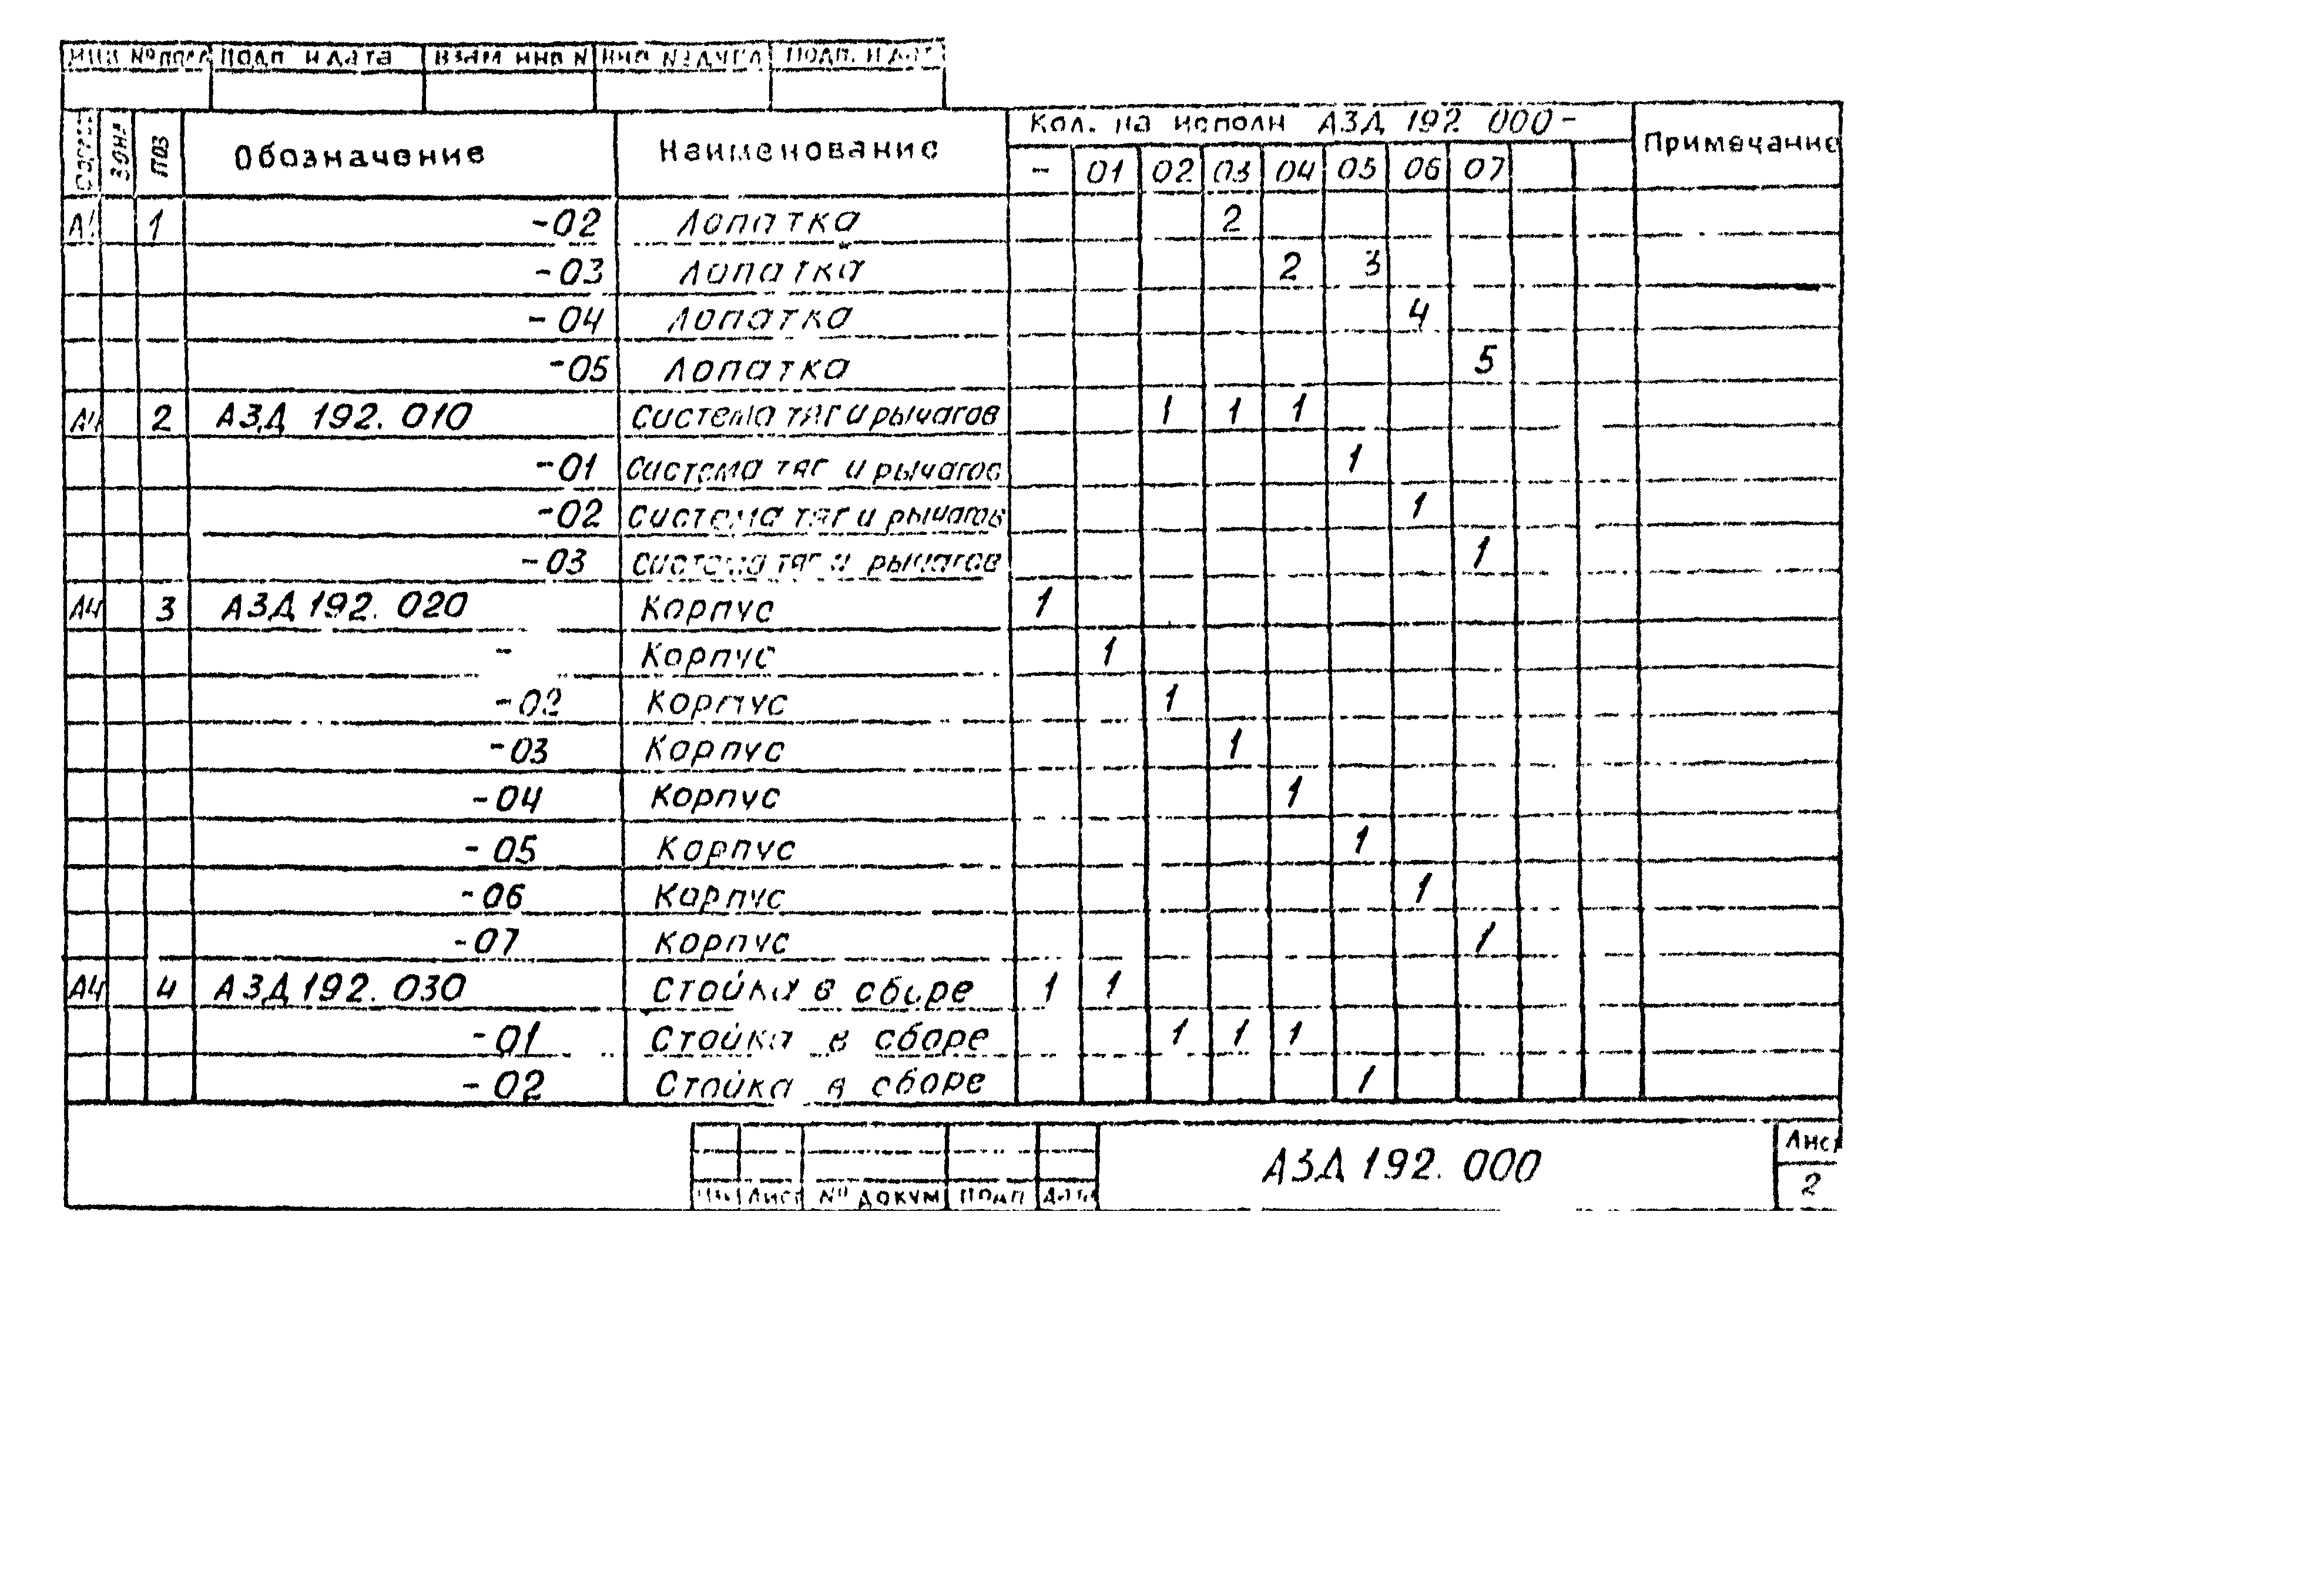 Подп и дата Взам инв N Подп. и дат
Зона Поз Обозначение Наименование Кол. на исполн АЗД 192 000- Примечание
- 01 02 03 04 05 06 07
1 -02 Лопатка 2
-03 Лопатка 2 3
-04 Лопатка 4
-05 Лопатка 5
А4 2 АЗД 192. 010 Система тяг и рычагов 1 1 1
-01 Система тяг и рычагов 1
-02 Система тяг и рычагов 1
-03 Система тяг и рычагов 1
А4 3 АЗД 192. 020 Корпус 1
- Корпус 1
-02 Корпус 1
-03 Корпус 1
-04 Корпус 1
-05 Корпус 1
-06 Корпус 1
-07 Корпус 1
А4 4 АЗД 192. 030 Стойка в сборе 1 1
-01 Стойка в сборе 1 1 1
-02 Стойка в сборе 1
Лист № докум Подп Дата
АЗД 192. 000
Лист
2